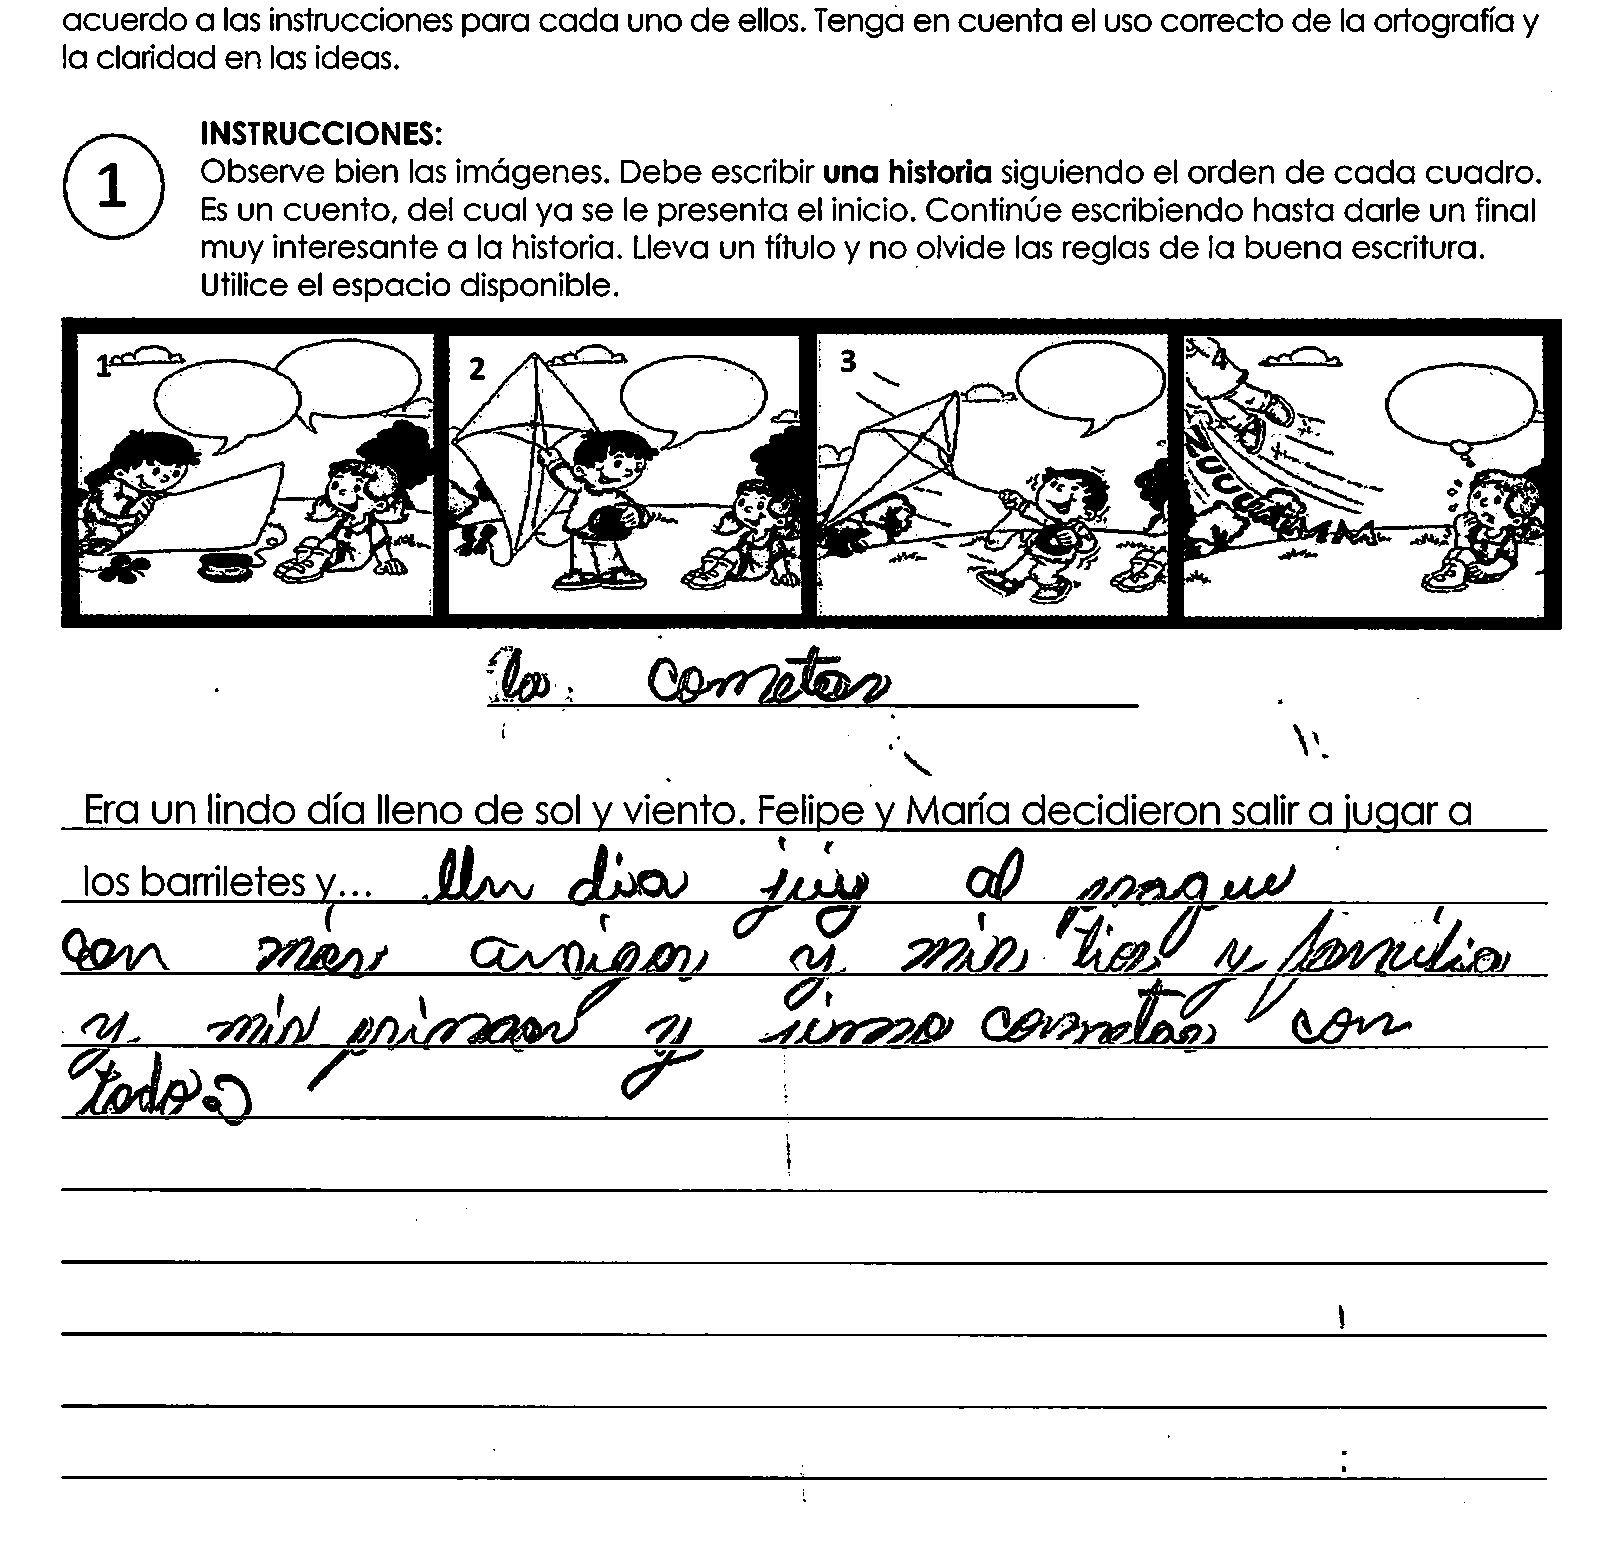 acuerdo a las instrucciones para cada uno de ellos. Tenga en cuenta el uso correcto de la ortografía y
la claridad en las ideas.
1
INSTRUCCIONES:
Observe bien las imágenes. Debe escribir una historia siguiendo el orden de cada cuadro.
Es un cuento, del cual ya se le presenta el inicio. Continúe escribiendo hasta darle un final
muy interesante a la historia. Lleva un título y no olvide las reglas de la buena escritura.
Utilice el espacio disponible.
1 2 3 4
la cometas
Era un lindo día lleno de sol y viento. Felipe y María decidieron salir a jugar a
los barriletes y... Un dia al
con amigos y mis tios y familia
y mis primos y cometas con
todo